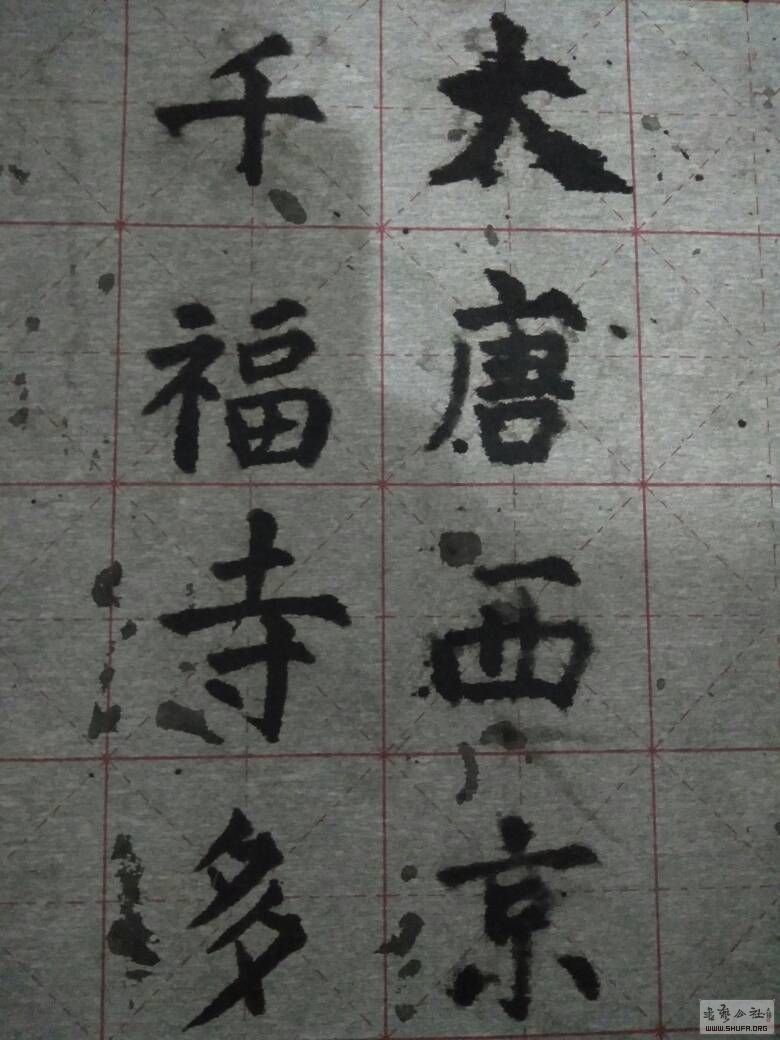 大唐西京
千福寺多
书艺公社
WWW.SHUFA.ORG